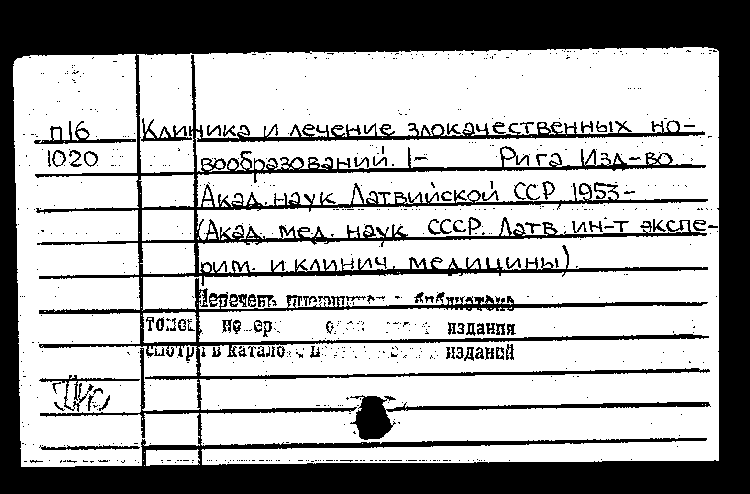 п16 Клиника и лечение злокачественных но-
1020 вообразований. 1- Рига, Изд-во
Акад. наук Латвийской ССР, 1953-
(Акад. мед. наук СССР. Латв. ин-т экспе-
рим. и клинич. медицины)
Перечень имеющихся в библиотеке
издания
смотри в издании